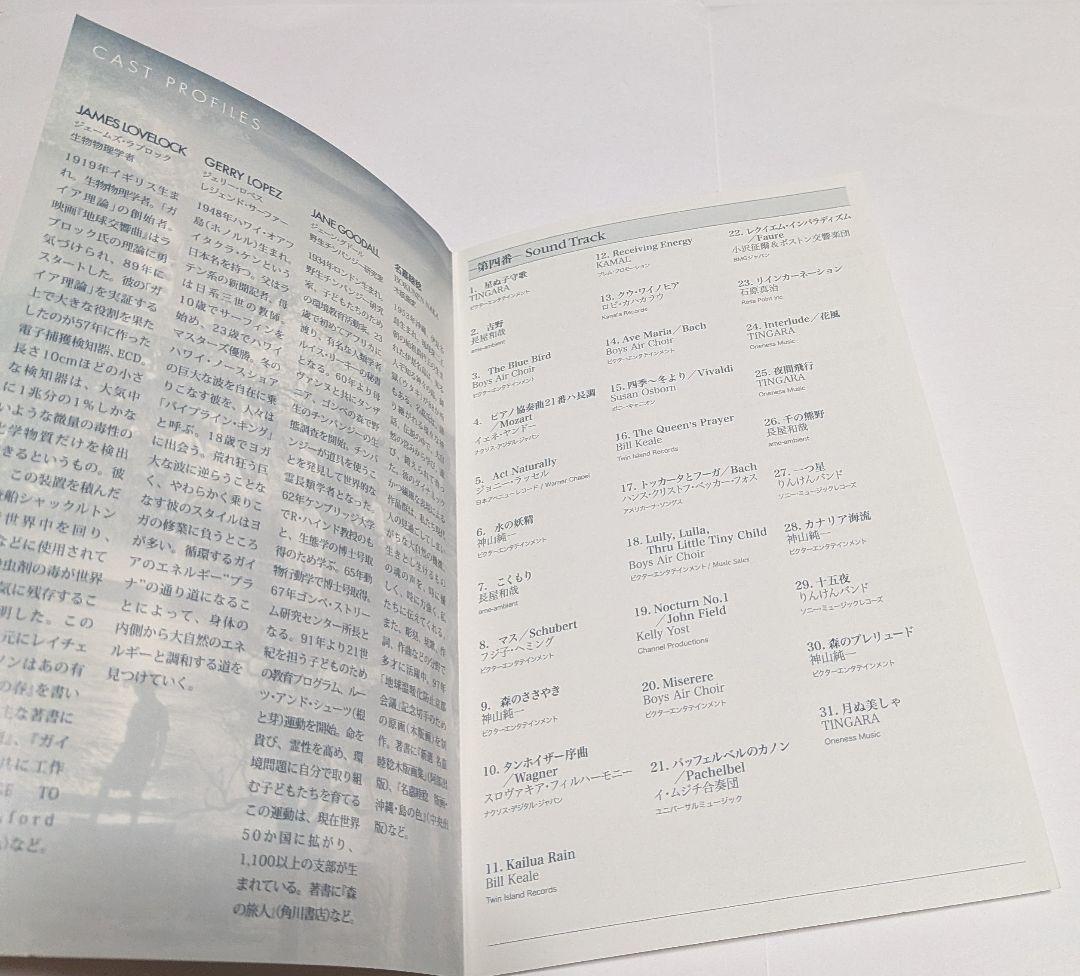 CAST PROFILES
JAMES LOVELOCK
ジェームズ・ラブロック
生物物理学者
1919年イギリス生ま
れ。生物物理学者。「ガ
イア理論」の創始者。
映画『地球交響曲』はラ
ブロック氏の理論に勇
気づけられ、89年に
スタートした。彼の「ガ
イア理論」を実証する
上で大きな役割を果た
したのが57年に作った
電子捕獲検知器、ECD。
長さ10cmほどの小さ
な検知器は、大気中
に1兆分の1%しかな
いような微量の毒性の
学物質だけを検出
きるというもの。彼
この装置を積んだ
船シャックルトン
世界中を回り、
などに使用されて
虫剤の毒が世界
気に残存するこ
明した。この
元にレイチェ
ソンはあの有
の春』を書い
主な著書に
』、『ガイ
共に工作
TO
ford
』など。
GERRY LOPEZ
ジェリー・ロペス
レジェンド・サーファー
1948年ハワイ・オアフ
島(ホノルル)生まれ。
イタクラ・ケンという
日本名を持つ。父はラ
テン系の新聞記者、母
は日系三世の教師。
10歳でサーフィンを
始め、23歳でハワイ
マスターズ優勝。冬の
ハワイ・ノースショア
の巨大な波を自在に乗
りこなす彼を、人々は
「パイプライン・キング」
と呼ぶ。18歳でヨガ
に出会う。荒れ狂う巨
大な波に逆らうことな
く、やわらかく乗りこ
なす彼のスタイルはヨ
ガの修業に負うところ
が多い。循環するガイ
アのエネルギー“プラ
ナ”の通り道になるこ
とによって、身体の
内側から大自然のエネ
ルギーと調和する道を
見つけていく。
JANE GOODALL
ジェーン・グドール
野生チンパンジー研究家
1934年ロンドン生まれ。
野生チンパンジー研究
家、子どもたちのため
の環境教育活動家。23
歳で初めてアフリカに
渡り、有名な人類学者
ルイス・リーキーの秘書
となる。60年より母
ヴァンヌと共にタンザ
ニア、ゴンベの森で野
生のチンパンジーの生
態調査を開始。チンパ
ンジーが道具を使うこ
とを発見して世界的な
霊長類学者となった。
62年ケンブリッジ大学
でR・ハインド教授のも
と、生態学の博士号取
得のため学ぶ。65年動
物行動学で博士号取得。
67年ゴンベ・ストリー
ム研究センター所長と
なる。91年より21世
紀を担う子どものため
の教育プログラム、ルー
ツ・アンド・シューツ(根
と芽)運動を開始。命を
貴び、霊性を高め、環
境問題に自分で取り組
む子どもたちを育てる
この運動は、現在世界
50か国に拡がり、
1,100以上の支部が生
まれている。著書に『森
の旅人』(角川書店)など。
名嘉睦稔
第四番 Sound Track
1. 星ぬ子守歌
TINGARA
ビクターエンタテインメント
2. 吉野
長屋和哉
ame-ambient
3. The Blue Bird
Boys Air Choir
ビクターエンタテインメント
4. ピアノ協奏曲21番ハ長調
／Mozart
イェネ・ヤンドー
ナクソス・デジタル・ジャパン
5. Act Naturally
ジョニー・ラッセル
日本アベニューレコード / Warner Chapel
6. 水の妖精
神山純一
ビクターエンタテインメント
7. こくもり
長屋和哉
ame-ambient
8. マス／Schubert
フジ子・ヘミング
ビクターエンタテインメント
9. 森のささやき
神山純一
ビクターエンタテインメント
10. タンホイザー序曲
／Wagner
スロヴァキア・フィルハーモニー
ナクソス・デジタル・ジャパン
11. Kailua Rain
Bill Keale
Twin Island Records
12. Receiving Energy
KAMAL
プレム・プロモーション
13. クウ・ワイノヒア
ロビ・カハカラウ
Kanai'a Records
14. Ave Maria／Bach
Boys Air Choir
ビクターエンタテインメント
15. 四季〜冬より／Vivaldi
Susan Osborn
ポニーキャニオン
16. The Queen's Prayer
Bill Keale
Twin Island Records
17. トッカータとフーガ／Bach
ハンス・クリストフ・ベッカー・フォス
アメリカーナ・ソングス
18. Lully, Lulla,
Thru Little Tiny Child
Boys Air Choir
ビクターエンタテインメント / Music Sales
19. Nocturn No.1
／John Field
Kelly Yost
Channel Productions
20. Miserere
Boys Air Choir
ビクターエンタテインメント
21. パッフェルベルのカノン
／Pachelbel
イ・ムジチ合奏団
ユニバーサルミュージック
22. レクイエム・インパラディズム
／Faure
小沢征爾&ボストン交響楽団
BMGジャパン
23. リインカーネーション
石原真治
Rose Point Inc
24. Interlude／花風
TINGARA
Oneness Music
25. 夜間飛行
TINGARA
Oneness Music
26. 千の熊野
長屋和哉
ame-ambient
27. 一つ星
りんけんバンド
ソニー・ミュージックレコーズ
28. カナリア海流
神山純一
ビクターエンタテインメント
29. 十五夜
りんけんバンド
ソニー・ミュージックレコーズ
30. 森のプレリュード
神山純一
ビクターエンタテインメント
31. 月ぬ美しゃ
TINGARA
Oneness Music